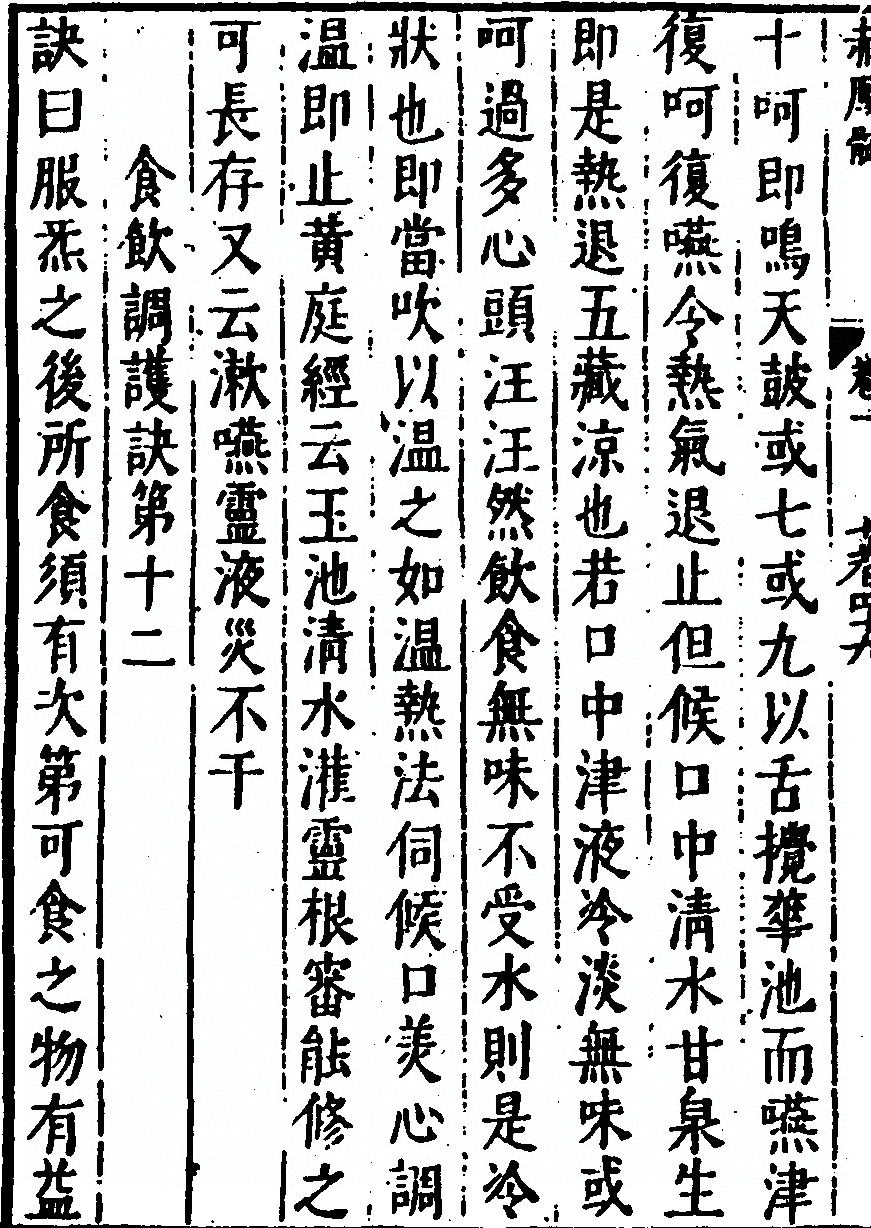 十呵即鳴天鼓或七或九以舌攪華池而嚥津
復呵復嚥令熱氣退止但候口中清水甘泉生
即是熱退五藏涼也若口中津液冷淡無味或
呵過多心頭汪汪然飲食無味不受水則是冷
狀也即當吹以温之如温熱法伺候口美心調
温即止黄庭經云玉池清水灌靈根審能修之
可長存又云漱嚥靈液災不干
食飲調護訣第十二
訣曰服炁之後所食須有次第可食之物有益